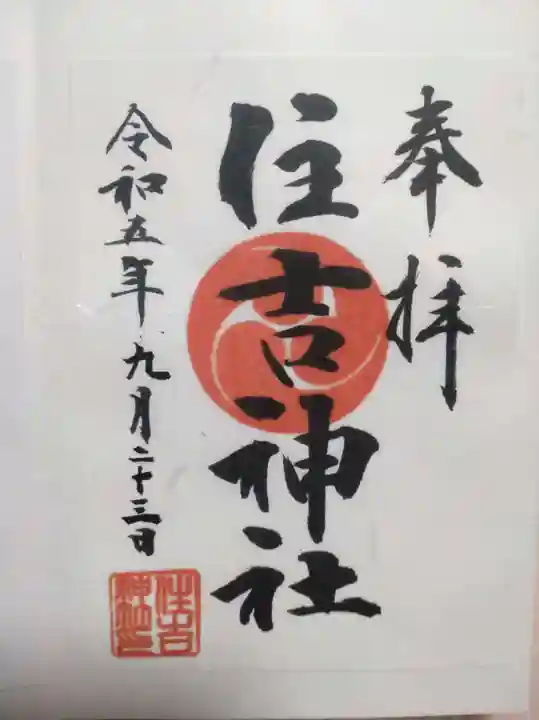 奉拝
住吉神社
令和五年九月二十三日
住吉
神社